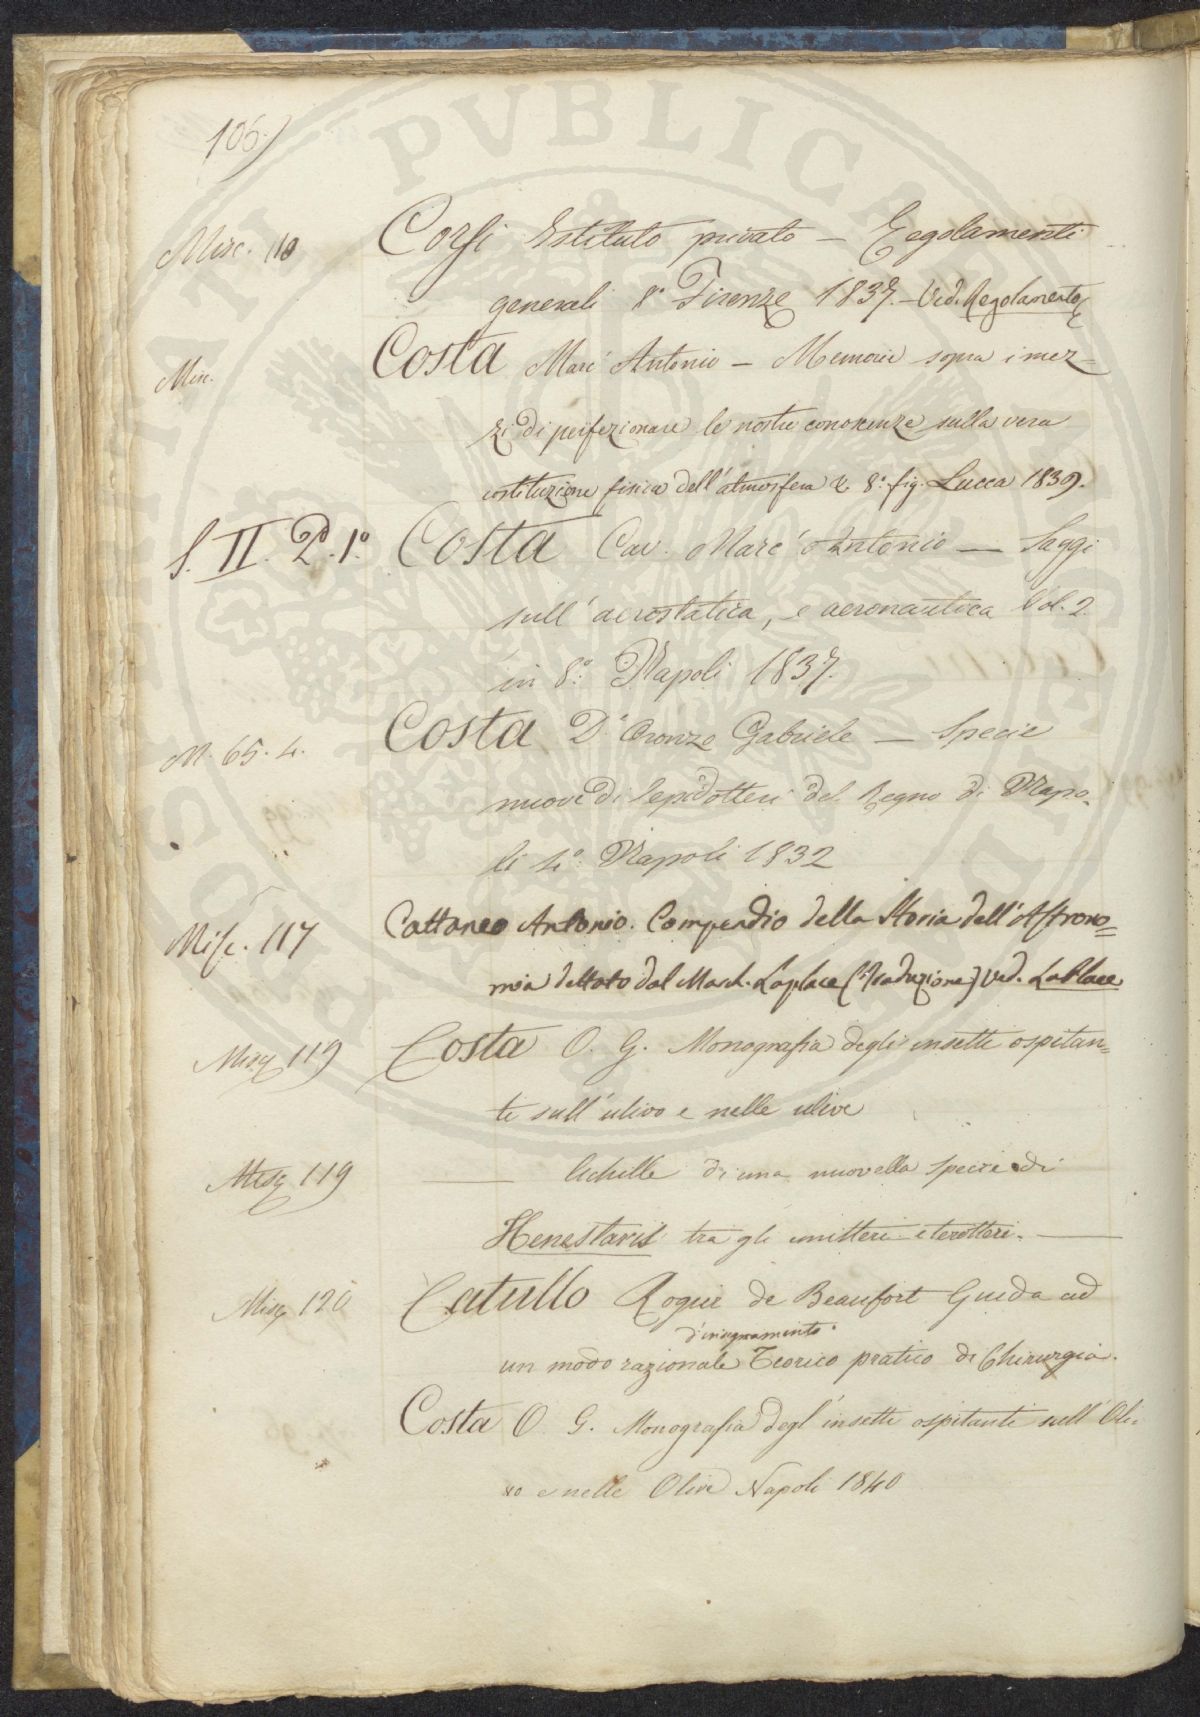 106.)
Misc. 110 Corsi Istituto privato — Regolamenti
generali 8° Firenze 1837. — Ved. Regolamento
Misc. Costa Marc' Antonio — Memorie sopra i mez=
zi di perfezionare le nostre conoscenze sulla vera
costituzione fisica dell'atmosfera &. 8.° fig. Lucca 1839.
S. II. P. 1.° Costa Cav. Marc' Antonio — Saggi
sull' aerostatica, e aeronautica Vol. 2
in 8.° Napoli 1837.
M. 65. 4. Costa D.r Oronzo Gabriele — Specie
nuove di lepidotteri del Regno di Napo-
li 4.° Napoli 1832
Misc. 117 Cattaneo Antonio. Compendio della Storia dell' Astrono=
mia dettato dal March. Laplace (Traduzione) Ved. LaPlace
Misc 119 Costa O. G. Monografia degli insetti ospitan=
ti sull' ulivo e nelle ulive
Misc 119 — Achille di una nuovella specie di
Henestaris tra gli emitteri eterotteri. —
Misc 120 Catullo Roquie de Beaufort Guida ad
d'insegnamento
un modo razionale Teorico pratico di Chirurgia.
Costa O. G. Monografia degl' insetti ospitanti sull' Oli-
vo e nelle Olive Napoli 1840